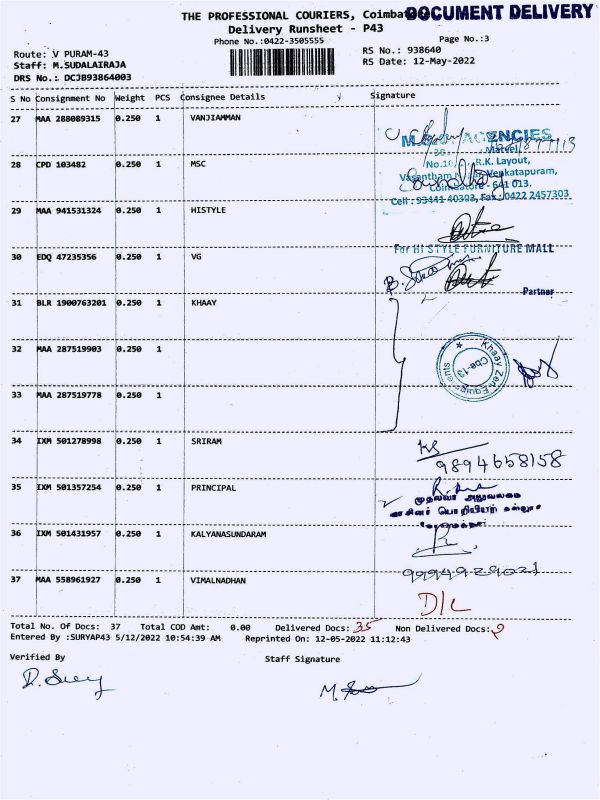 THE PROFESSIONAL COURIERS, Coimbatore
DOCUMENT DELIVERY
Delivery Runsheet - P43
Phone No.:0422-3505555
Page No.:3
Route: V PURAM-43
RS No.: 938640
Staff: M.SUDALAIRAJA
RS Date: 12-May-2022
DRS No.: DCJB93864003
S No Consignment No Weight PCS Consignee Details Signature
27 MAA 288089315 0.250 1 VANJIAMMAN
AGENCIES
28 CPD 103482 0.250 1 MSC
R.K. Layout,
Venkatapuram,
Coimbatore - 641 013.
Cell : 93441 40393, Fax : 0422 2457303
29 MAA 941531324 0.250 1 HISTYLE
For HI STYLE FURNITURE MALL
30 EDQ 47235356 0.250 1 VG
Partner
31 BLR 1900763201 0.250 1 KHAAY
32 MAA 287519903 0.250 1
Khaay Zen Equipments
Cbe-13
33 MAA 287519778 0.250 1
34 IXM 501278998 0.250 1 SRIRAM
9894658158
35 IXM 501357254 0.250 1 PRINCIPAL
முதல்வர் அலுவலகம்
36 IXM 501431957 0.250 1 KALYANASUNDARAM
37 MAA 558961927 0.250 1 VIMALNADHAN
9994929021
D/L
Total No. Of Docs: 37 Total COD Amt: 0.00 Delivered Docs: 35 Non Delivered Docs: 2
Entered By :SURYAP43 5/12/2022 10:54:39 AM Reprinted On: 12-05-2022 11:12:43
Verified By Staff Signature